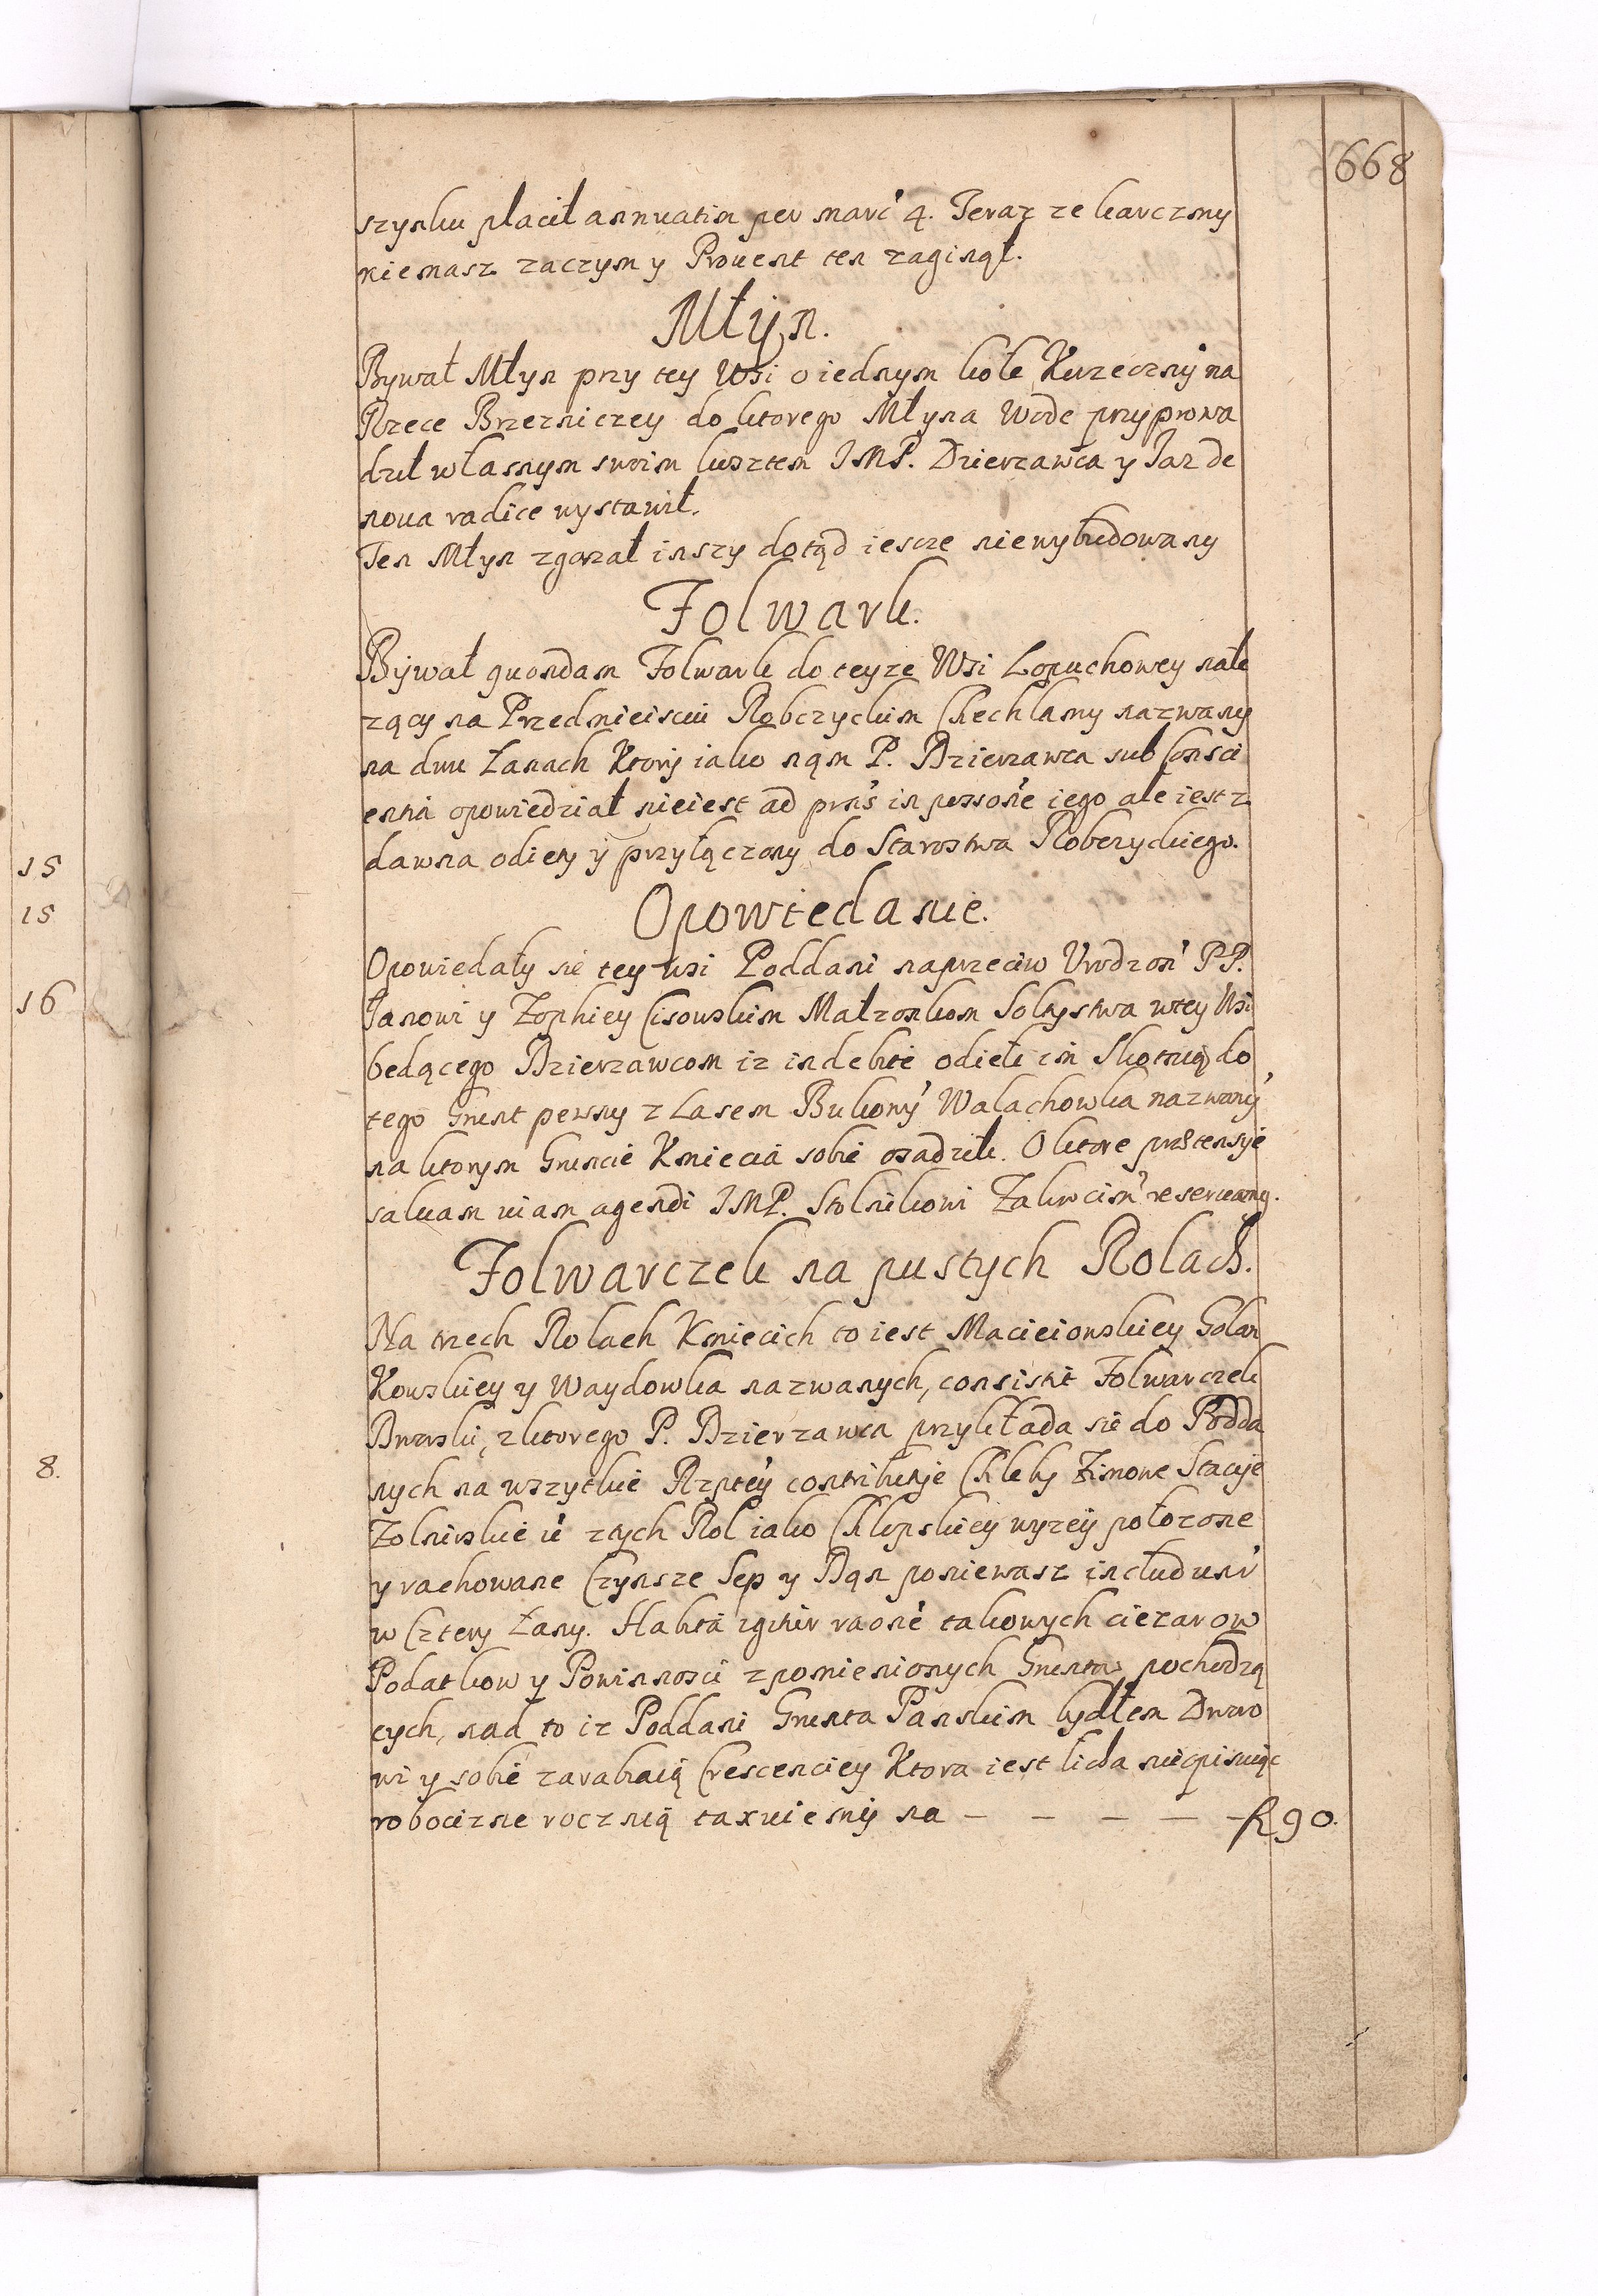 668
szynku płacił annuatim per marc 4. Teraz ze karczmy
niemasz zaczym y Prouent ten zaginął.
Młyn.
Bywał Młyn przy tey Wsi o iednym kole Kurzeczny na
Rzece Brzezniczey do ktorego Młyna Wode przyprowa
dził własnym swoim kosztem JMP. Dzierzawca y Jaz de
noua radice wystawił.
Ten Młyn zgorzał inszy dotąd iescze niewybudowany
Folwark.
Bywał quondam Folwark do teyze Wsi Łopuchowey nale
zący na Przedmieisciu Robczyckim Chechlamy nazwany
na dwu Łanach Ktory iako nąm P. Dzierzawca sub Consci
entia opowiedział nieiest ad prns in possone iego ale iest z
dawna odięty y przyłączony do Starostwa Robczyckiego.
Opowiedanie.
Opowiedały się tey wsi Poddani naprzeciw Vrodzon PP.
Janowi y Zophiey Cisowskim Małzonkom Sołtystwa wtey Wsi
będącego Dzierzawcom iz indebite odieli im Skotnią do
tego Grunt pewny z Lasem Bukony Walachowka nazwany
na ktorym Gruncie Kmiecia sobie osadzili. O ktore prætensye
saluam uiam agendi JMP. Stolnikowi reseruamy.
Folwarczek na pustych Rolach.
Na trzech Rolach Kmiecich to iest Macieiowskiey Golan
Kowskiey y Waydowka nazwanych, consistit Folwarczek
Brzeski, zktorego P. Dzierzawca przykłada się do Podda
nych na wszytkie Rzptey contributye Chleby Zimowe Stacye
Zołnirskie z tych Rol iako Chłopskiey wyzey połozone
y rachowane Czynsze Sep y Dąn poniewasz includunr
w Cztery Łany. Habita igitur raone takowych cięzarow
Podatkow y Powinnosci zpomienionych Gruntow pochodzą
cych, nad to iz Poddani Grunta Panskim bydłem Dwro
wi y sobie zarabiaią Crescenciey Ktora iest licha nieopisuiąc
robocizne roczną taxuiemy na — — — — — fl 90.
15
15
16
8.